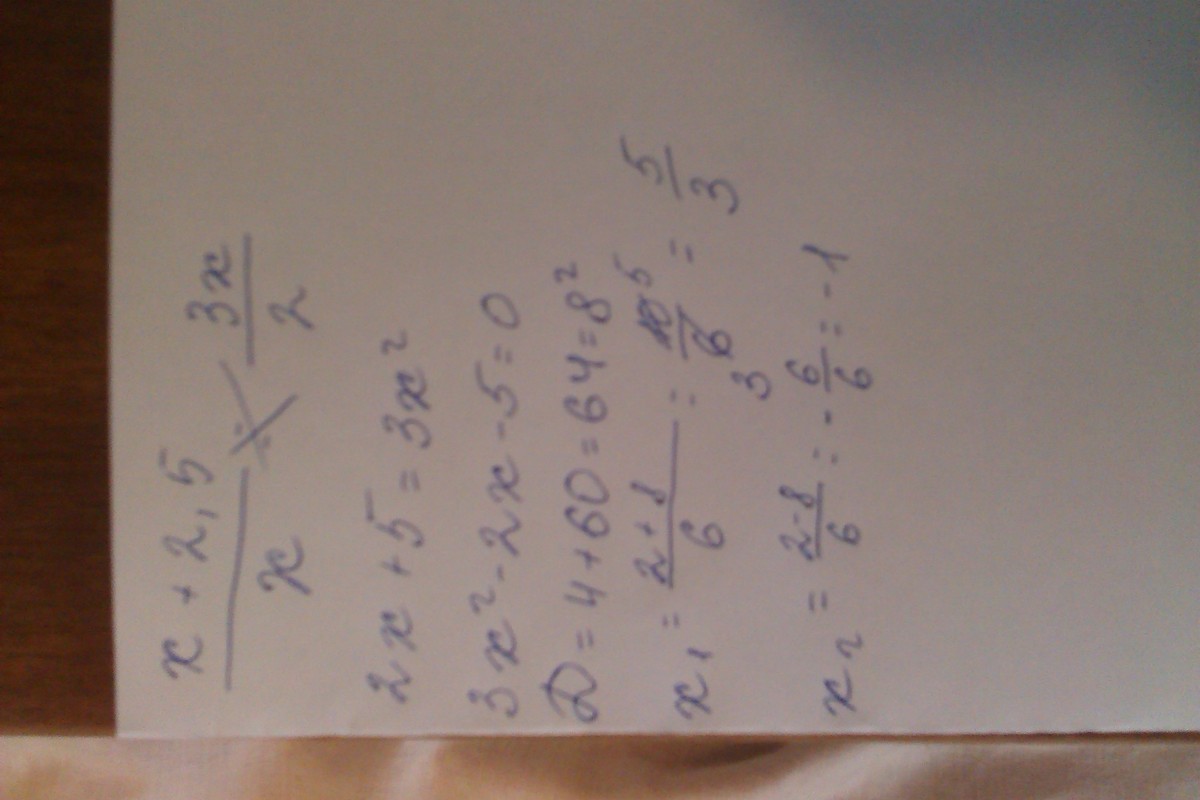 x + 2,5 / x = 3x / 2
2x + 5 = 3x²
3x² - 2x - 5 = 0
D = 4 + 60 = 64 = 8²
x₁ = 2 + 8 / 6 = 10 5 / 6 3 = 5 / 3
x₂ = 2 - 8 / 6 = - 6 / 6 = -1